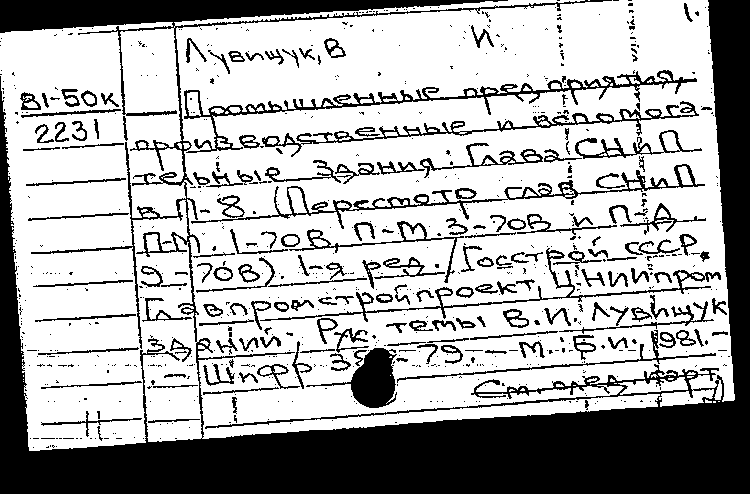 1.
Лувищук, В И.
81-50к
2231
Промышленные предприятия,
производственные и вспомога-
тельные здания: Глава СНиП
в П-8. (Пересмотр глав СНиП
П-М. 1-70В, П-М. 3-70В и П-Д.
9-70В). 1-я ред./Госстрой СССР.
Главпромстройпроект, ЦНИИпром
зданий; Рук. темы В.И. Лувищук
.- Шифр 79.- М.: Б.и., 1981.-
См. след. карт.
11